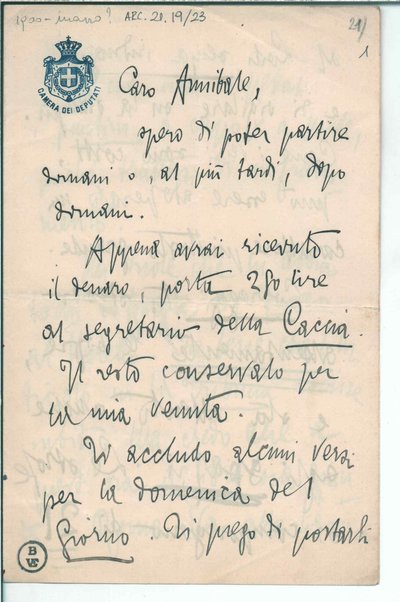 1900-marzo? ARC. 21. 19/23
21/1
1
CAMERA DEI DEPUTATI
Caro Annibale,
spero di poter partire
domani o, al più tardi, dopo
domani.
Appena avrai ricevuto
il denaro, porta 280 lire
al segretario della Caccia.
Il resto conservalo per
la mia venuta.
Ti accludo alcuni versi
per la domenica del
Giorno. Ti prego di portarli
B
VE